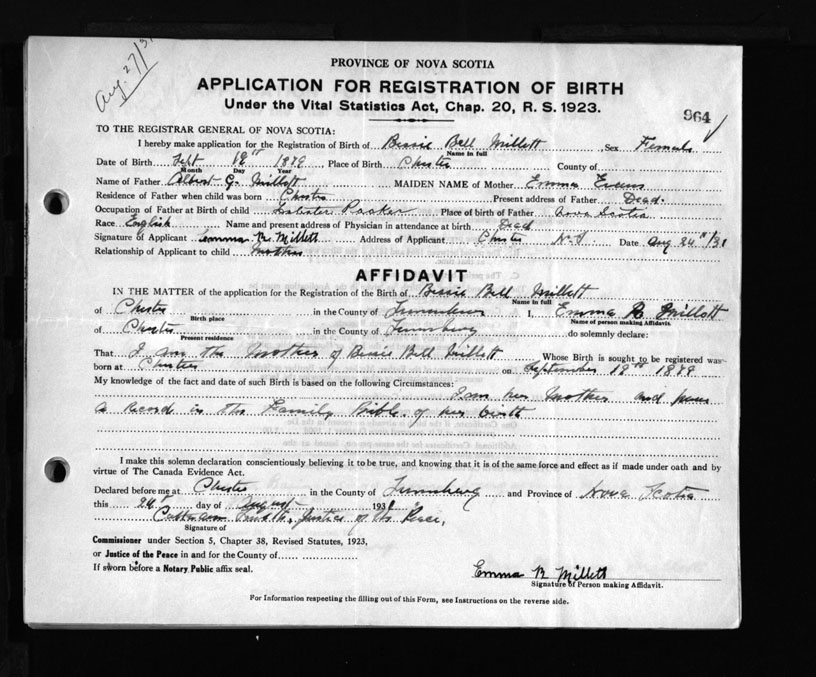 Aug. 27/31
PROVINCE OF NOVA SCOTIA
APPLICATION FOR REGISTRATION OF BIRTH
Under the Vital Statistics Act, Chap. 20, R. S. 1923.
964
TO THE REGISTRAR GENERAL OF NOVA SCOTIA:
I hereby make application for the Registration of Birth of Bessie Bell Millett Sex Female
Name in full
Date of Birth Sept 12th 1879, Place of Birth Chester County of
Month Day Year
Name of Father Albert G. Millett MAIDEN NAME of Mother Emma Evens
Residence of Father when child was born Chester Present address of Father Dead.
Occupation of Father at Birth of child Lobster Packer Place of birth of Father Nova Scotia
Race English Name and present address of Physician in attendance at birth Dead
Signature of Applicant Emma R. Millett Address of Applicant Chester N.S. Date Aug 24"/31
Relationship of Applicant to child Mother
AFFIDAVIT
IN THE MATTER of the application for the Registration of the Birth of Bessie Bell Millett
Name in full
of Chester in the County of Lunenburg I, Emma R Millett
Birth place Name of person making Affidavit.
of Chester in the County of Lunenburg do solemnly declare:
Present residence
That I am the Mother of Bessie Bell Millett Whose Birth is sought to be registered was
born at Chester on September 12th 1879
My knowledge of the fact and date of such Birth is based on the following Circumstances:
I am her Mother and have
a record in the Family Bible of her birth
I make this solemn declaration conscientiously believing it to be true, and knowing that it is of the same force and effect as if made under oath and by
virtue of The Canada Evidence Act.
Declared before me at Chester in the County of Lunenburg and Province of Nova Scotia
this 24 day of August 1931
Justice of the Peace,
Signature of
Commissioner under Section 5, Chapter 38, Revised Statutes, 1923,
or Justice of the Peace in and for the County of
If sworn before a Notary Public affix seal.
Emma R Millett
Signature of Person making Affidavit.
For Information respecting the filling out of this Form, see Instructions on the reverse side.